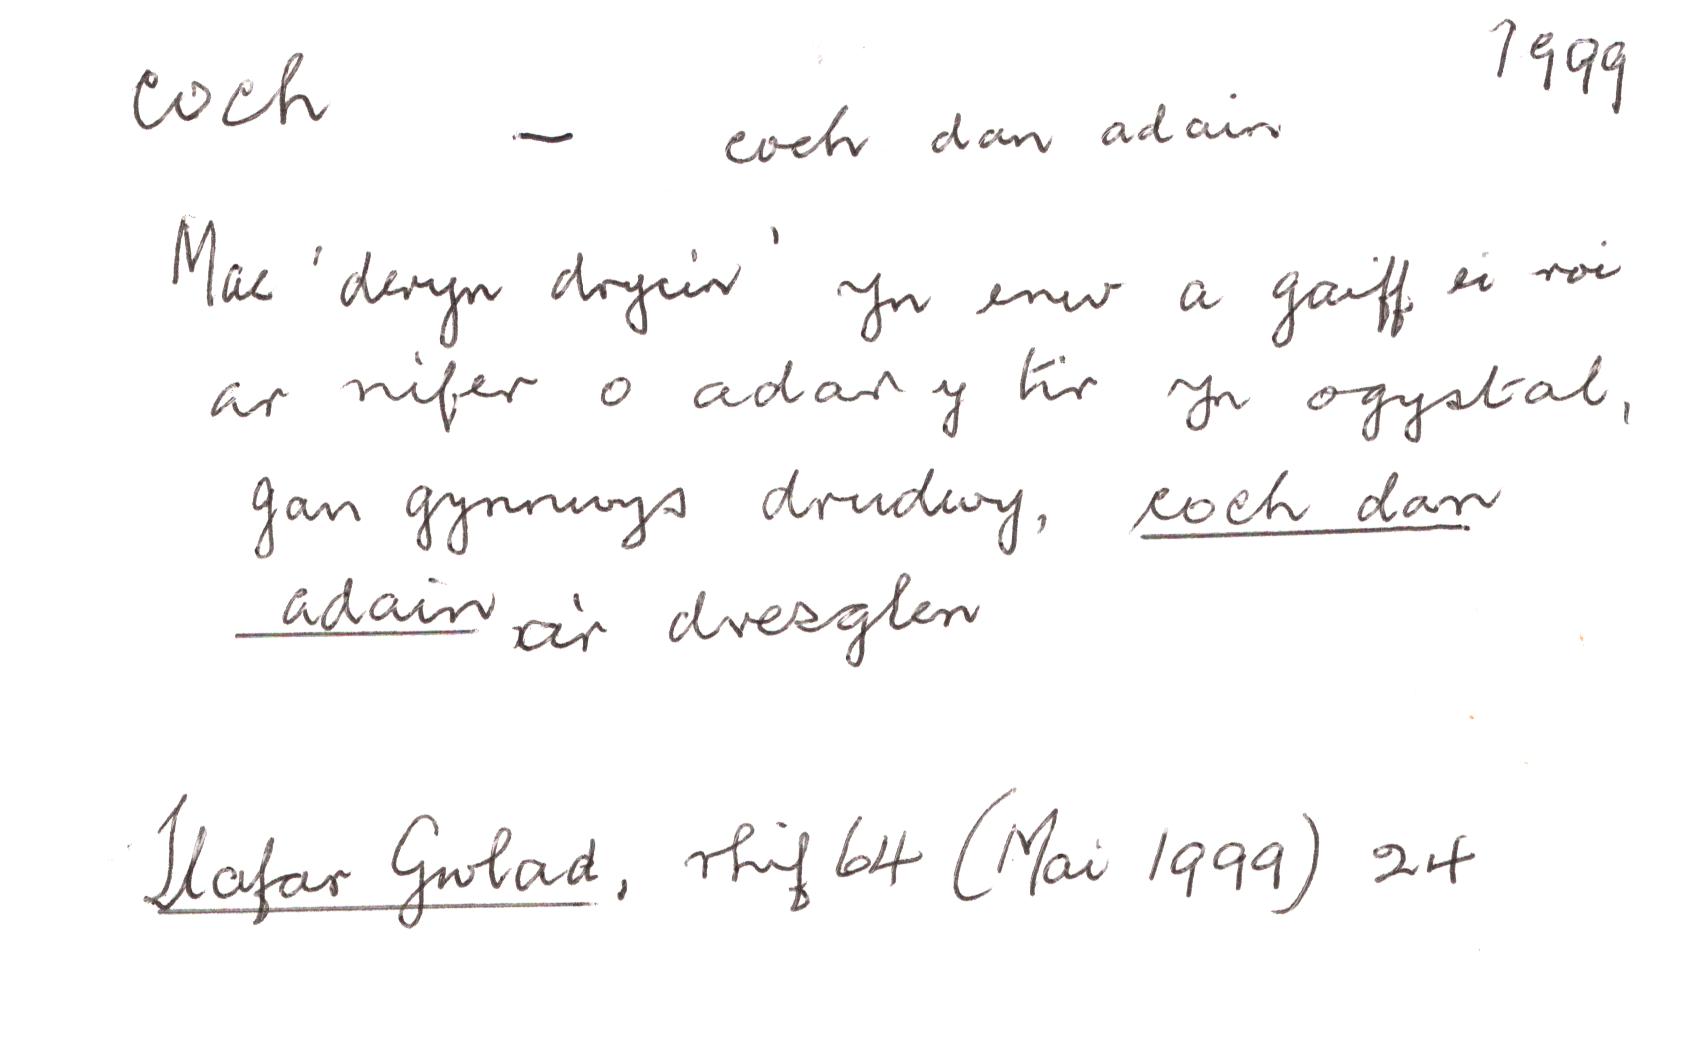 coch 1999
– coch dan adain
Mae 'deryn drycin' yn enw a gaiff ei roi
ar nifer o adar y tir yn ogystal,
gan gynnwys drudwy, coch dan
adain a'r dresglen
Llafar Gwlad, rhif 64 (Mai 1999) 24